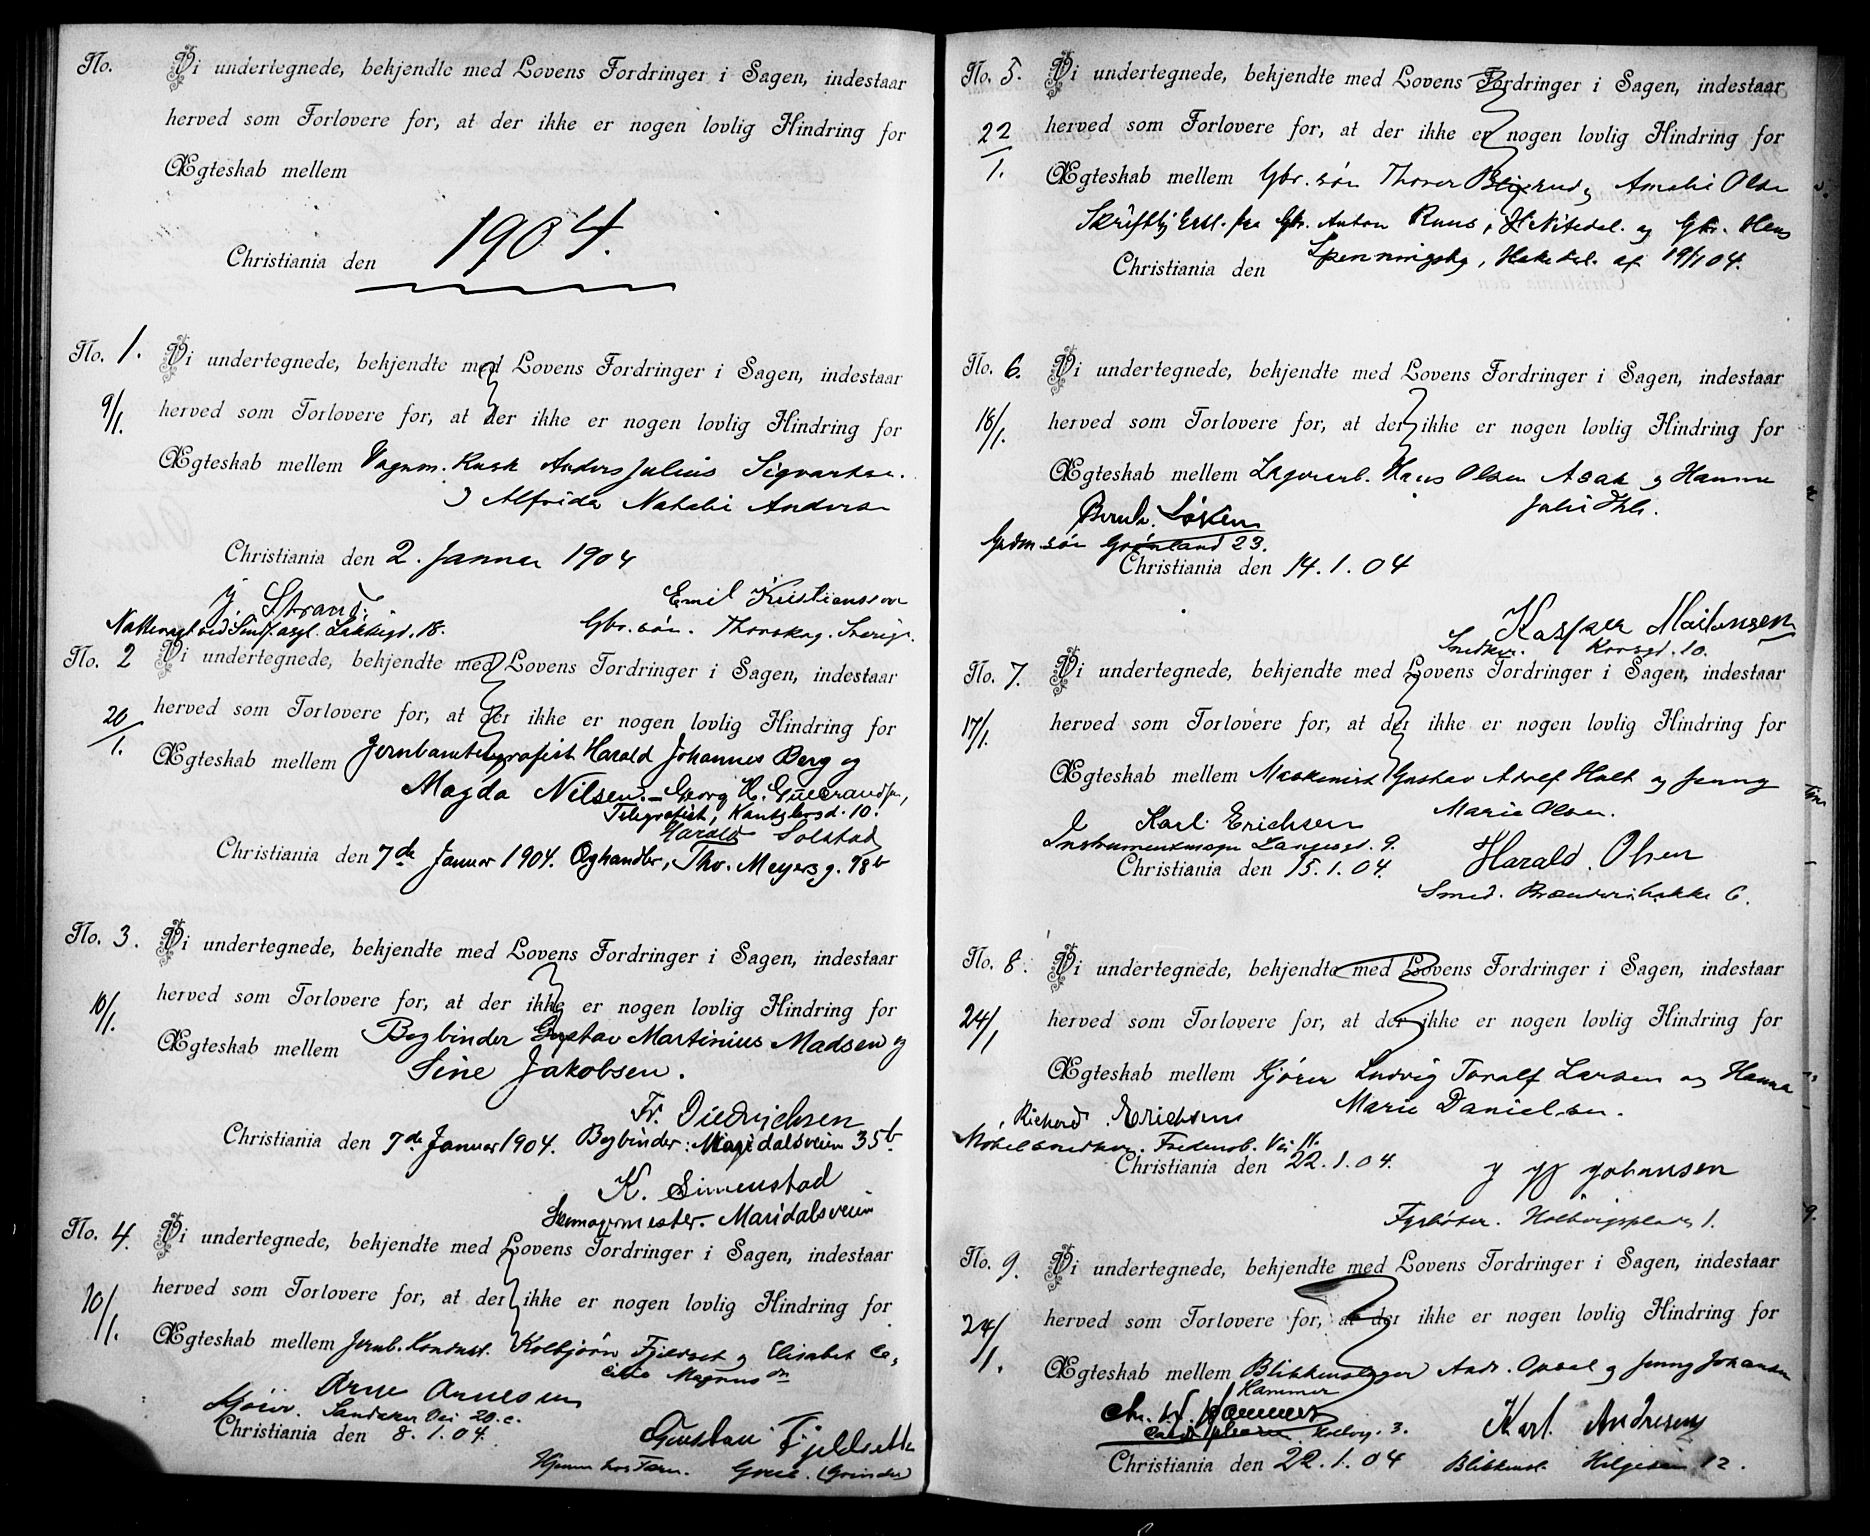 No.
Vi undertegnede, bekjendte med Lovens Fordringer i Sagen, indestaar
herved som Forlovere for, at der ikke er nogen lovlig Hindring for
Ægteskab mellem
1904.
Christiania den
No. 1.
Vi undertegnede, bekjendte med Lovens Fordringer i Sagen, indestaar
9/1.
herved som Forlovere for, at der ikke er nogen lovlig Hindring for
Ægteskab mellem Vognm. Kusk Anders Julius Sigvartsen
Alfrida Natalie Andersen
Christiania den 2. Januar 1904
J. Strand.
Emil Kristiansson
Nattevagt ved Sindsasyl. Lakkegd. 18.
Gbr. søn. Sverige
No. 2
Vi undertegnede, bekjendte med Lovens Fordringer i Sagen, indestaar
20/1.
herved som Forlovere for, at der ikke er nogen lovlig Hindring for
Ægteskab mellem Jernbanetelegrafist Harald Johannes Berg og
Magda Nilsen. – Georg H. Gulbrandsen,
Telegrafist, Kantslersd. 10.
Harald Solstad
Christiania den 7de Januar 1904. Øghandler, Thv. Meyersg. 78b
No. 3.
Vi undertegnede, bekjendte med Lovens Fordringer i Sagen, indestaar
10/1.
herved som Forlovere for, at der ikke er nogen lovlig Hindring for
Ægteskab mellem Bogbinder Gustav Martinius Madsen og
Sine Jakobsen.
Fr. Diedrichsen
Christiania den 7de Januar 1904. Bogbinder: Maridalsveien 35b.
K. Simenstad
Skomagermester. Maridalsveien
No. 4.
Vi undertegnede, bekjendte med Lovens Fordringer i Sagen, indestaar
10/1.
herved som Forlovere for, at der ikke er nogen lovlig Hindring for
Ægteskab mellem Jernb. Kondukt. Kolbjørn Fjeldset og Elisabet Ce-
cilie Magnusdn
Arne Arnesen
Kjører. Sandaker Vei 20.c.
Christiania den 8.1.04.
Gustav Fjeldsette
Grue. (Grinder)
No. 5.
Vi undertegnede, bekjendte med Lovens Fordringer i Sagen, indestaar
22/1.
herved som Forlovere for, at der ikke er nogen lovlig Hindring for
Ægteskab mellem Gbr. søn Amalie Olsen
Skriftlig Erkl. fra Gbr. Anton Ruus, Nitedal. og Gbr. Hans
Christiania den Spenningsby, Hakedal. af 19/1 04.
No. 6.
Vi undertegnede, bekjendte med Lovens Fordringer i Sagen, indestaar
18/1.
herved som Forlovere for, at der ikke er nogen lovlig Hindring for
Ægteskab mellem Lagerarb. Hans Olsen Asak og Hanna
Julie Ihle.
Bernh. Løken
Grdm. søn Grønland 23.
Christiania den 14.1.04
Kasper Mortensen
Snedker. Korsgd. 10.
No. 7.
Vi undertegnede, bekjendte med Lovens Fordringer i Sagen, indestaar
17/1.
herved som Forlovere for, at der ikke er nogen lovlig Hindring for
Ægteskab mellem Maskinist Gustav Adolf Holt og Jenny
Marie Olsen.
Karl Erichsen
Instrumentmager Langesgt. 9.
Harald Olsen
Christiania den 15.1.04.
Smed. Brænderibakke 6.
No. 8.
Vi undertegnede, bekjendte med Lovens Fordringer i Sagen, indestaar
24/1
herved som Forlovere for, at der ikke er nogen lovlig Hindring for
Ægteskab mellem Kjører Ludvig Toralf Larsen og Hanna
Marie Danielsen.
Richard Erichsen
Møbelsnedker. Fredensb. Vei
Christiania den 22.1.04.
Johansen
Fyrbøter. Holbergsplads 1.
No. 9.
Vi undertegnede, bekjendte med Lovens Fordringer i Sagen, indestaar
24/1.
herved som Forlovere for, at der ikke er nogen lovlig Hindring for
Ægteskab mellem Blikkenslager Andr. Opsal og Jenny Johansen
Hammer
Chr. Hammer
Holbergs. 3.
Karl Andresen
Christiania den 22.1.04
Blikkensl. 12.